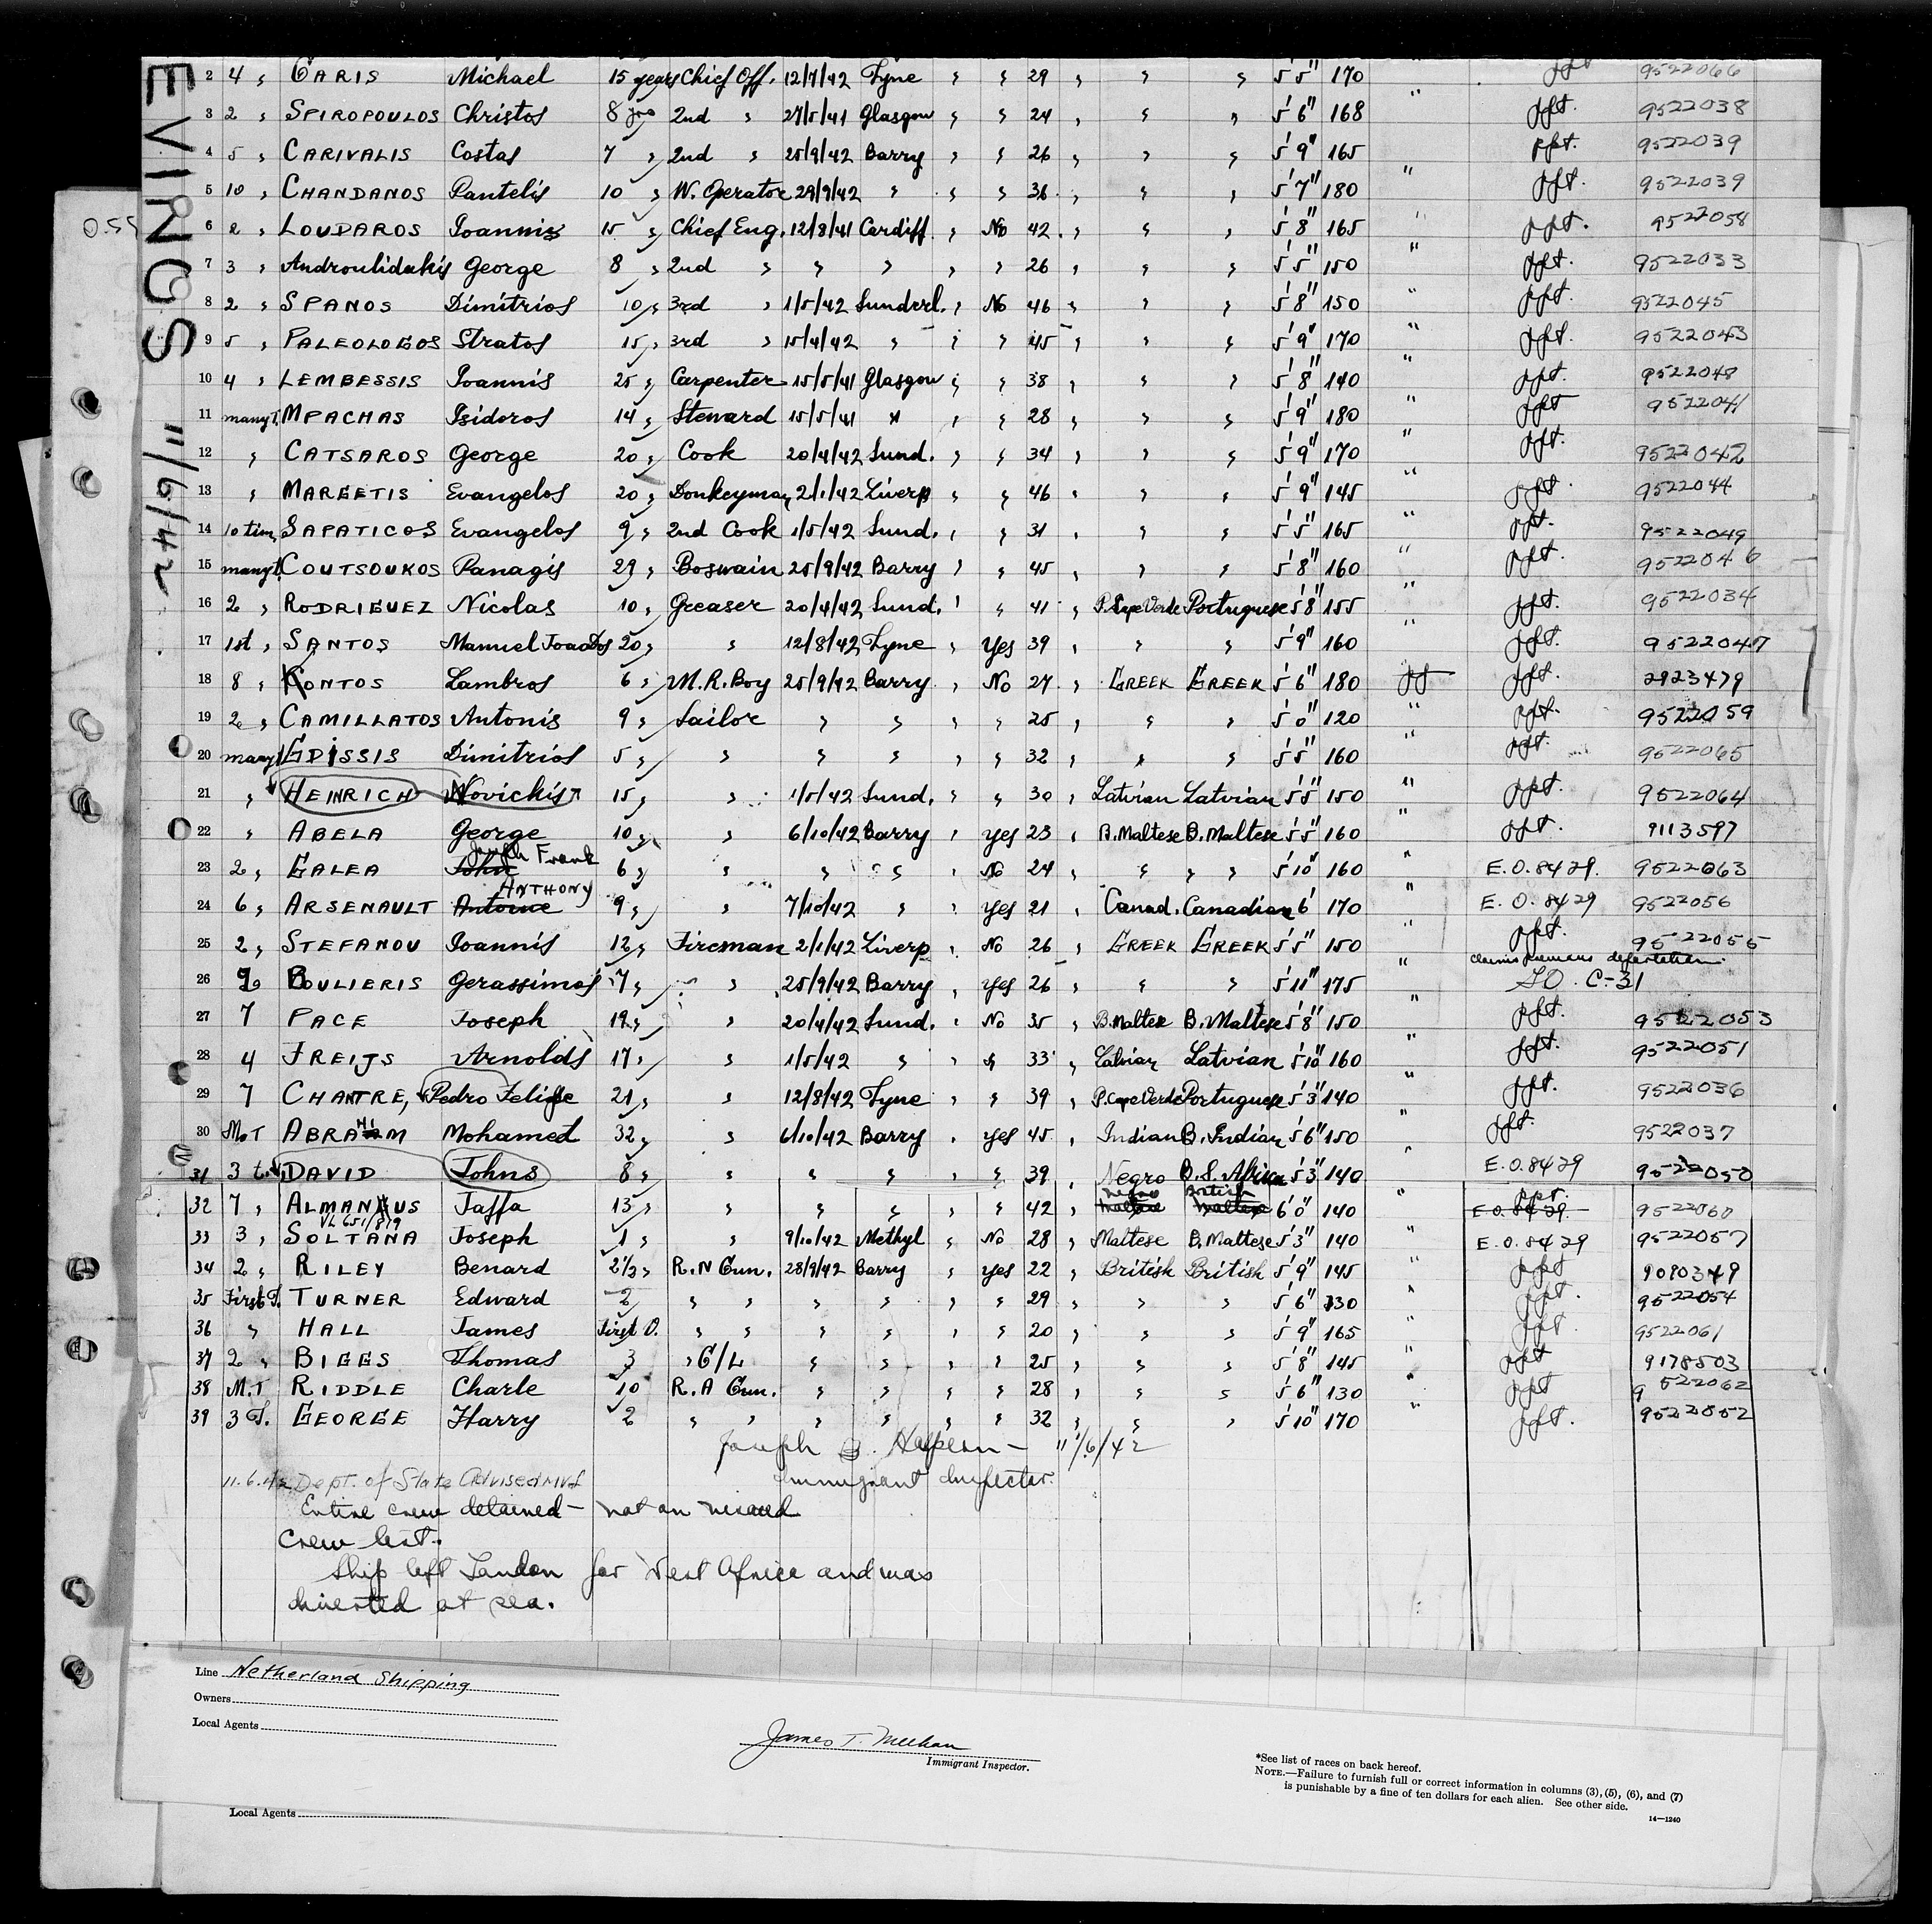 EVINGS 11/6/42
0.55
2 4 " CARIS Michael 15 years Chief Off. 12/7/42 Tyne " " 29 " " " 5'5" 170 " ppt 9522066
3 2 " SPIROPOULOS Christos 8 yrs 2nd " 27/5/41 Glasgow " " 24 " " " 5'6" 168 " ppt. 9522038
4 5 " CARIVALIS Costas 7 " 2nd " 25/9/42 Barry " " 26 " " " 5'9" 165 ppt. 9522039
5 10 " CHANDANOS Pantelis 10 " W. Operator 29/9/42 " " " 36 " " " 5'7" 180 " ppt. 9522039
6 2 " LOUDAROS Ioannis 15 " Chief Eng. 12/8/41 Cardiff " No 42 " " " 5'8" 165 " ppt. 9522058
7 3 " Androulidakis George 8 " 2nd " " " " " 26 " " " 5'5" 150 " ppt. 9522033
8 2 " SPANOS Dimitrios 10 " 3rd " 1/5/42 Sunderl. " No 46 " " " 5'8" 150 " ppt. 9522045
9 5 " PALEOLOGOS Stratos 15 " 3rd " 15/4/42 " " " 45 " " " 5'9" 170 " ppt. 9522043
10 4 " LEMBESSIS Ioannis 25 " Carpenter 15/5/41 Glasgow " " 38 " " " 5'8" 140 " ppt. 9522048
11 many T. MPACHAS Isidoros 14 " Steward 15/5/41 " " " 28 " " " 5'9" 180 " ppt 9522041
12 " CATSAROS George 20 " Cook 20/4/42 Sund. " " 34 " " " 5'9" 170 " ppt. 9522042
13 " MARGETIS Evangelos 20 " Donkeyman 2/1/42 Liverp " " 46 " " " 5'9" 145 " ppt. 9522044
14 10 tim. SAPATICOS Evangelos 9 " 2nd Cook 1/5/42 Sund. " " 31 " " " 5'5" 165 " ppt. 9522049
15 many T. COUTSOUKOS Panagis 29 " Boswain 25/9/42 Barry " " 45 " " " 5'8" 160 " ppt. 9522046
16 2 " RODRIGUEZ Nicolas 10 " Greaser 20/4/42 Sund. " " 41 " P. Cape Verde Portuguese 5'8" 155 " ppt. 9522034
17 1st " SANTOS Manuel Joao Dos 20 " " 12/8/42 Tyne " Yes 39 " " " 5'9" 160 " ppt. 9522047
18 8 " KONTOS Lambros 6 " M.R. Boy 25/9/42 Barry " No 27 " GREEK GREEK 5'6" 180 ppt. 2923479
19 2 " CAMILLATOS Antonis 9 " Sailor " " " " 25 " " " 5'0" 120 " ppt. 9522059
20 many T GDISSIS Dimitrios 5 " " " " " " 32 " " " 5'5" 160 " ppt. 9522065
21 " HEINRICH Novickis 15 " " 1/5/42 Sund. " " 30 " Latvian Latvian 5'5" 150 " ppt. 9522064
22 " ABELA George 10 " " 6/10/42 Barry " Yes 23 " B. Maltese B. Maltese 5'5" 160 " ppt. 9113597
Joseph Frank
23 2 " GALEA John 6 " " " " " No 24 " " " 5'10" 160 " E.O. 8429. 9522063
ANTHONY
24 6 " ARSENAULT Antoine 9 " " 7/10/42 " " Yes 21 " Canad. Canadian 6' 170 " E.O. 8429 9522056
25 2 " STEFANOU Ioannis 12 " Fireman 2/1/42 Liverp " No 26 " GREEK GREEK 5'5" 150 " ppt. 9522055
claims previous deportation.
26 BOULIERIS Gerassimos 7 " " 25/9/42 Barry " Yes 26 " " " 5'11" 175 " C-31
27 7 PACE Joseph 19 " " 20/4/42 Sund. " No 35 " B. Maltese B. Maltese 5'8" 150 " ppt. 9522053
28 4 FREIJS Arnolds 17 " " 1/5/42 " " " 33 " Latvian Latvian 5'10" 160 " ppt. 9522051
29 7 CHANTRE, Pedro Felipe 21 " " 12/8/42 Tyne " " 39 " P. Cape Verde Portuguese 5'3" 140 " ppt. 9522036
30 M.T ABRAHIM Mohamed 32 " " 6/10/42 Barry " Yes 45 " Indian B. Indian 5'6" 150 " ppt. 9522037
31 3 t. DAVID Johns 8 " " " " " " 39 " Negro B.S. African 5'3" 140 " E.O. 8429 9522050
32 7 " ALMANUS Jaffa 13 " " " " " " 42 " Negro Maltese British Maltese 6'0" 140 " ppt. E.O. 8429. 9522060
VL 651/819
33 3 " SOLTANA Joseph 1 " " 9/10/42 Methyl " No 28 " Maltese B. Maltese 5'3" 140 " E.O. 8429 9522057
34 2 " RILEY Benard 2 1/2 " R.N Gun. 28/9/42 Barry " Yes 22 " British British 5'9" 145 " ppt 9090349
35 First T. TURNER Edward 2 " " " " " " 29 " " " 5'6" 130 " ppt. 9522054
36 " HALL James First V. " " " " " " 20 " " " 5'9" 165 " ppt. 9522061
37 2 " BIGGS Thomas 3 " G/L " " " " 25 " " " 5'8" 145 " ppt 9178503
38 M.T RIDDLE Charle 10 R.A Gun. " " " " 28 " " " 5'6" 130 " ppt 9522062
39 3 T. GEORGE Harry 2 " " " " " " 32 " " " 5'10" 170 " ppt. 9522052
Joseph B. Halpern – 11/6/42
Immigrant Inspector.
11.6.42 Dept. of State Advised
Entire crew detained – not on visaed
crew list.
Ship left London for West Africa and was
diverted at sea.
Line Netherland Shipping
Owners
Local Agents
James T. Meehan
Immigrant Inspector.
*See list of races on back hereof.
NOTE.—Failure to furnish full or correct information in columns (3), (5), (6), and (7)
is punishable by a fine of ten dollars for each alien. See other side.
14—1240
Local Agents